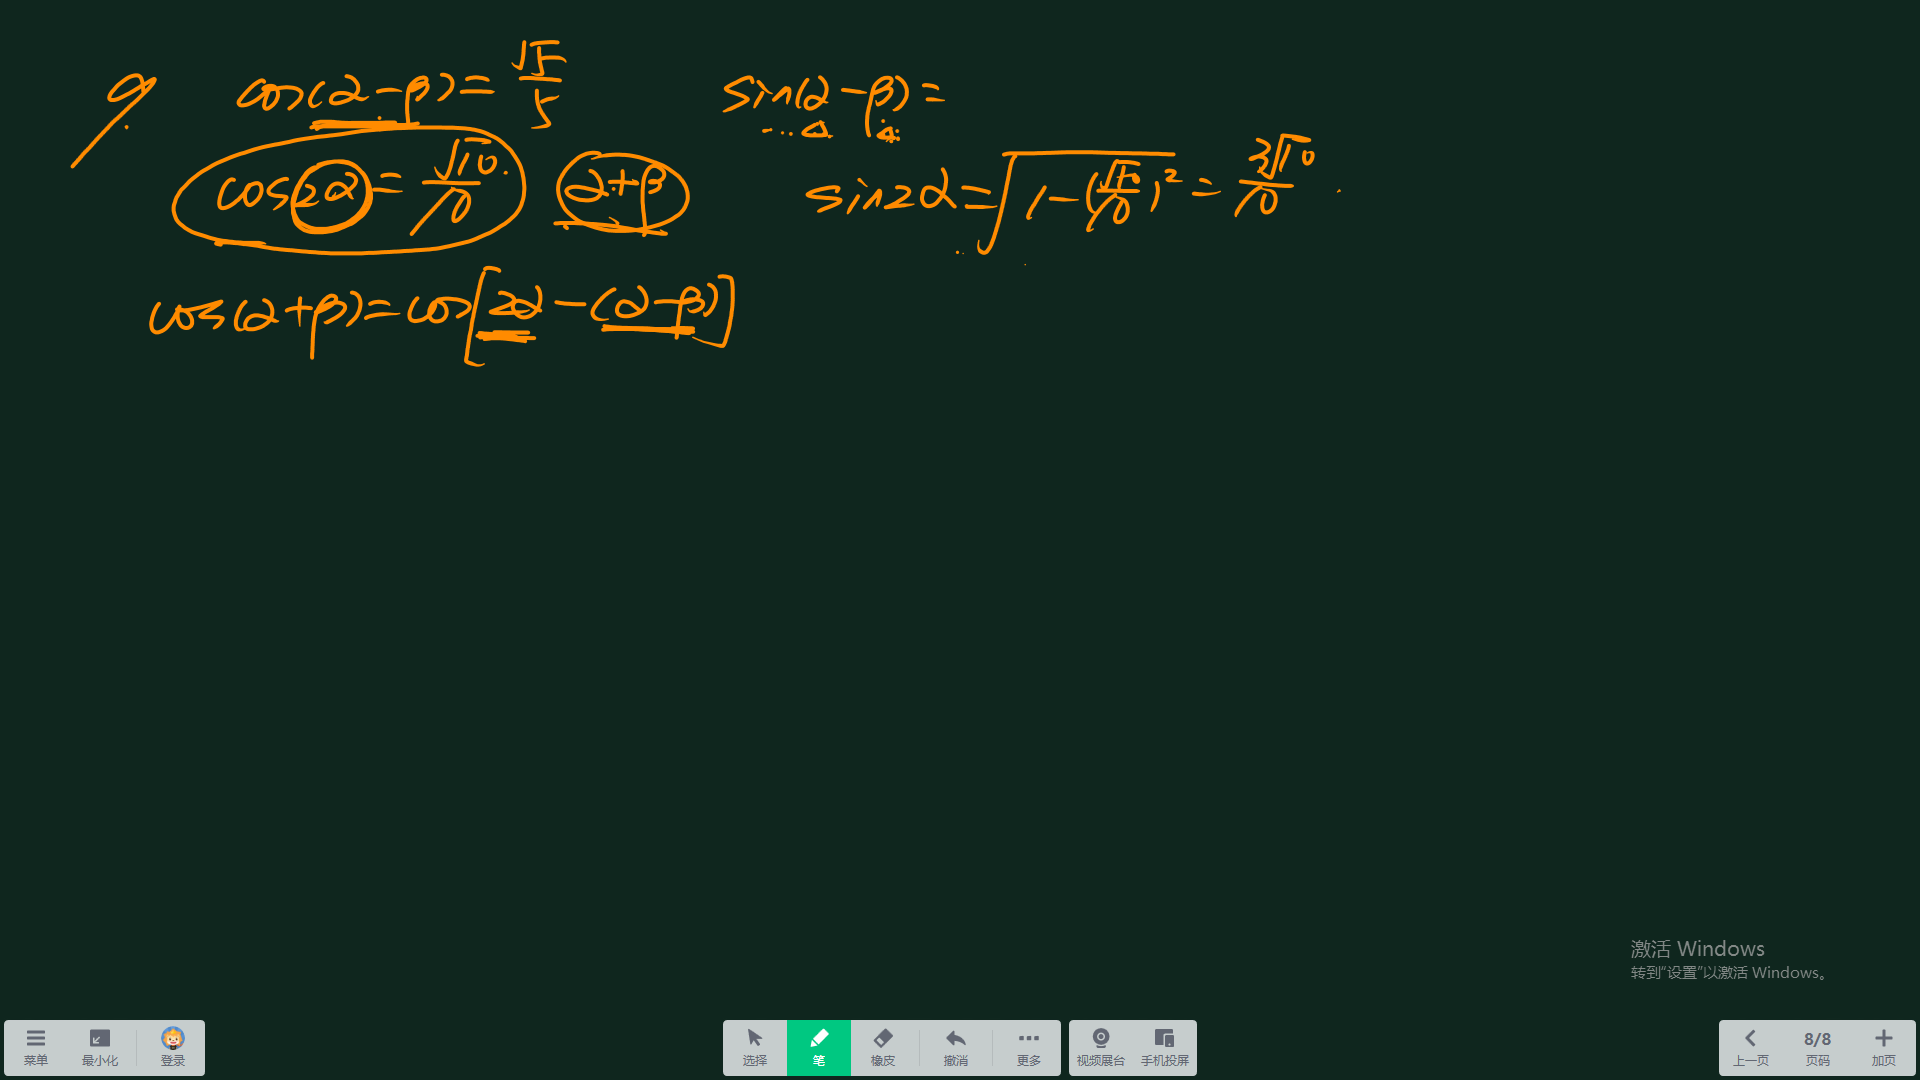 9. cos(α-β)=√5/5 sin(α-β)=
cos2α=√10/10. α+β sin2α=√(1-(√10/10)²)=3√10/10.
cos(α+β)=cos[2α-(α-β)]
激活 Windows
转到"设置"以激活 Windows。
菜单 最小化 登录 选择 笔 橡皮 撤消 更多 视频展台 手机投屏 上一页 8/8 页码 加页